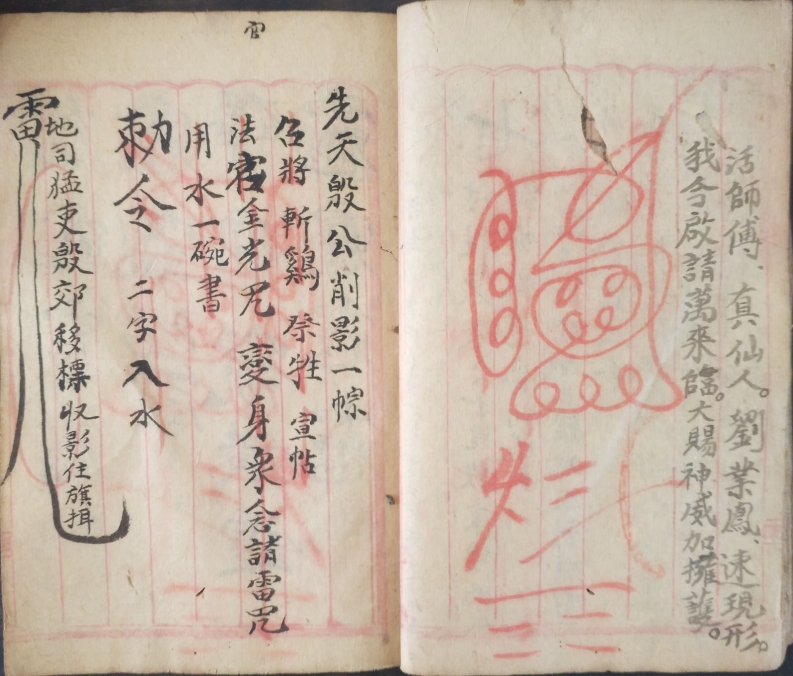 活師傅、真仙人。劉業鳳、速現形。
我今啟請萬來臨。大賜神威加擁護。
官
先天殷公削影一悰
召將 斬鷄祭牲 宣帖
法 金光咒 變身衆念諸雷咒
用水一碗書
勅令 二字入水
雷
地司猛吏殷郊移標收影住旗揖